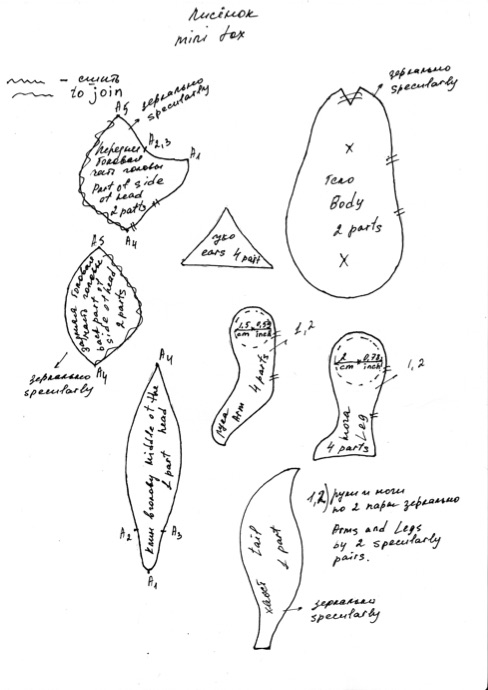 Лисёнок
mini fox
— сшить
to join
зеркально
specularly
A5
A2,3
A1
Передняя
боковая
часть головы
Part of side
of head
2 parts
A4
зеркально
specularly
Тело
Body
2 parts
x
x
ухо
ears 4 part
A5
задняя боковая
часть головы
back part of
side of head
2 parts
A4
зеркально
specularly
1,5 0,59
cm inch
1,2
4 parts
рука
Arm
2 0,78
cm inch
1,2
нога
Leg
4 parts
A4
Клин в голову Middle of the
head
1 part
A2
A3
A1
tail
хвост
1 part
зеркально
specularly
1,2) руки и ноги
по 2 пары зеркально
Arms and Legs
by 2 specularly
pairs.